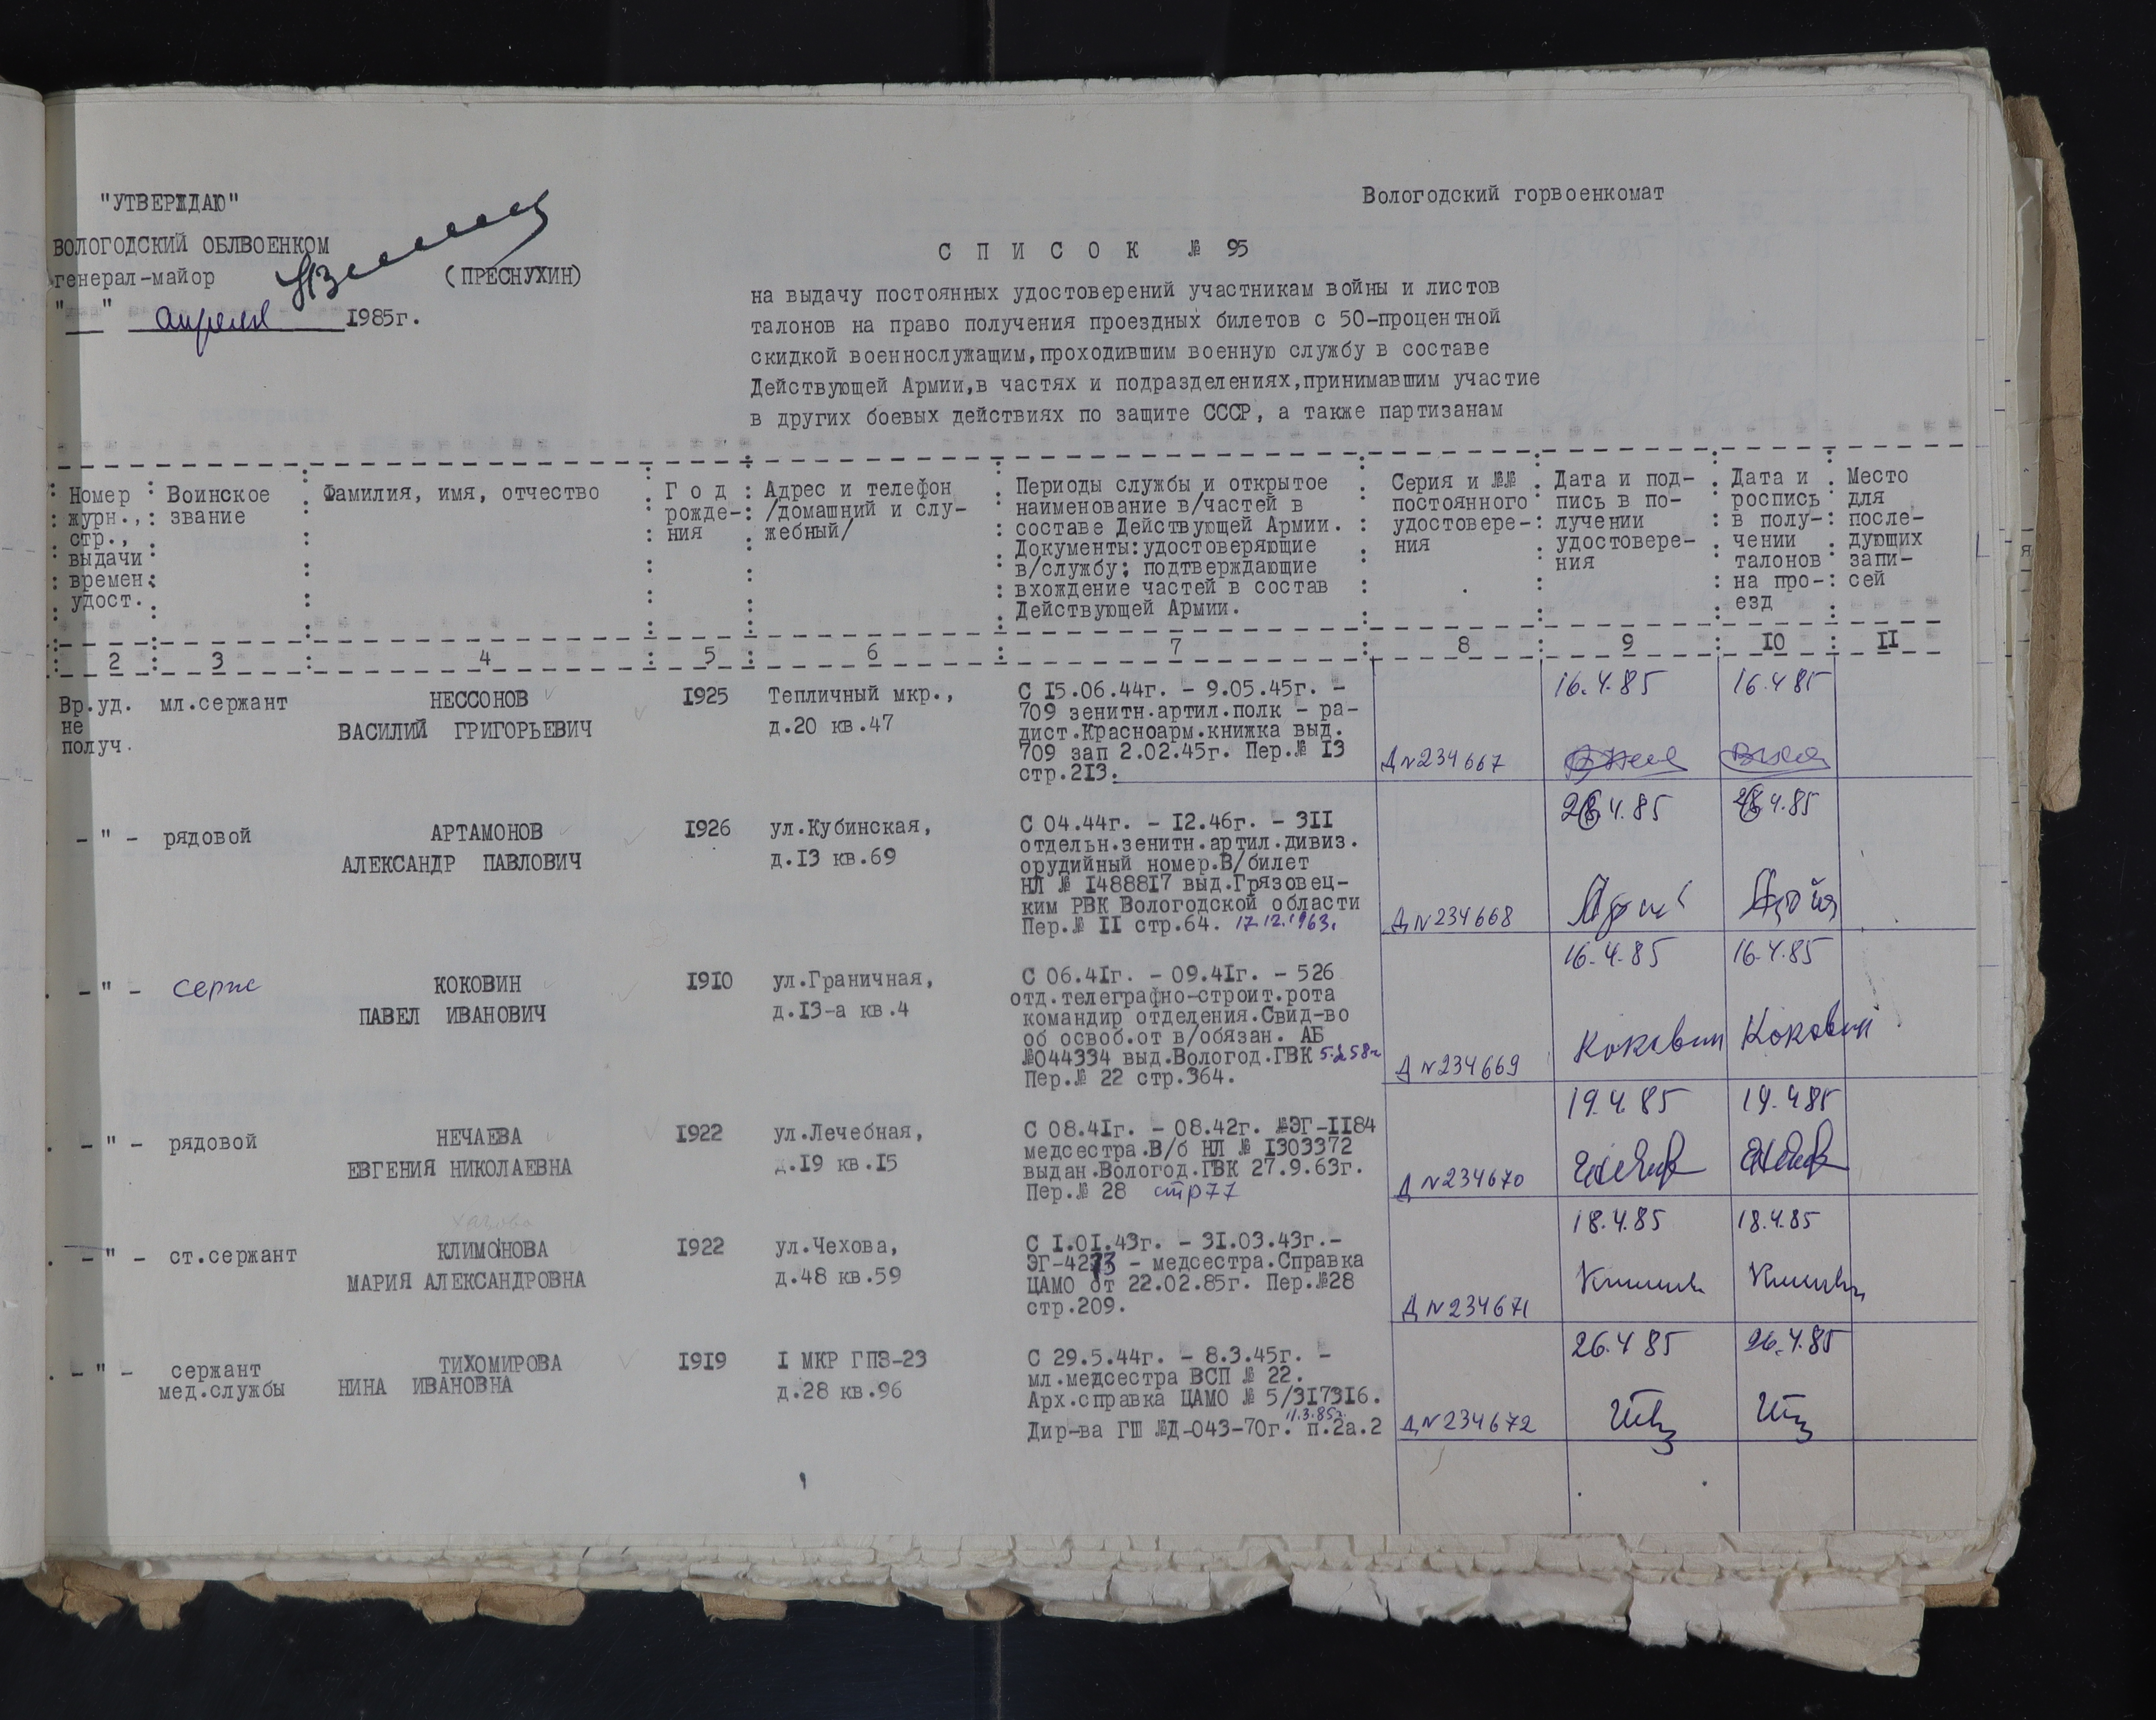 "УТВЕРЖДАЮ"
ВОЛОГОДСКИЙ ОБЛВОЕНКОМ
генерал-майор (ПРЕСНУХИН)
"__" апреля 1985г.
Вологодский горвоенкомат
С П И С О К № 95
на выдачу постоянных удостоверений участникам войны и листов
талонов на право получения проездных билетов с 50-процентной
скидкой военнослужащим,проходившим военную службу в составе
Действующей Армии,в частях и подразделениях,принимавшим участие
в других боевых действиях по защите СССР, а также партизанам
Номер
журн.,
стр.,
выдачи
времен.
удост.
Воинское
звание
Фамилия, имя, отчество
Г о д
рожде-
ния
Адрес и телефон
/домашний и слу-
жебный/
Периоды службы и открытое
наименование в/частей в
составе Действующей Армии.
Документы:удостоверяющие
в/службу; подтверждающие
вхождение частей в состав
Действующей Армии.
Серия и №№
постоянного
удостовере-
ния
Дата и под-
пись в по-
лучении
удостовере-
ния
Дата и
роспись
в полу-
чении
талонов
на про-
езд
Место
для
после-
дующих
запи-
сей
2 3 4 5 6 7 8 9 10 II
Вр.уд.
не
получ.
мл.сержант
НЕССОНОВ
ВАСИЛИЙ ГРИГОРЬЕВИЧ
I925
Тепличный мкр.,
д.20 кв.47
С I5.06.44г. - 9.05.45г. -
709 зенитн.артил.полк - ра-
дист.Красноарм.книжка выд.
709 зап 2.02.45г. Пер.№ I3
стр.2I3.
Д N 234667
16.4.85
16.4 85
- " -
рядовой
АРТАМОНОВ
АЛЕКСАНДР ПАВЛОВИЧ
I926
ул.Кубинская,
д.I3 кв.69
С 04.44г. - I2.46г. - 3II
отдельн.зенитн.артил.дивиз.
орудийный номер.В/билет
НЛ № I4888I7 выд.Грязовец-
ким РВК Вологодской области
Пер.№ II стр.64. 17.12.1963.
Д N 234668
4.85
4.85
- " -
серж
КОКОВИН
ПАВЕЛ ИВАНОВИЧ
I9I0
ул.Граничная,
д.I3-а кв.4
С 06.4Iг. - 09.4Iг. - 526
отд.телеграфно-строит.рота
командир отделения.Свид-во
об освоб.от в/обязан. АБ
№044334 выд.Вологод.ГВК
Пер.№ 22 стр.364.
Д N 234669
16.4.85
16.4.85
Коковин
Коковин
- " -
рядовой
НЕЧАЕВА
ЕВГЕНИЯ НИКОЛАЕВНА
I922
ул.Лечебная,
д.I9 кв.I5
С 08.4Iг. - 08.42г. №ЭГ-II84
медсестра.В/б НЛ № I303372
выдан.Вологод.ГВК 27.9.63г.
Пер.№ 28 стр77
Д N 234670
19.4.85
19.4 85
- " -
ст.сержант
КЛИМОНОВА
МАРИЯ АЛЕКСАНДРОВНА
I922
ул.Чехова,
д.48 кв.59
С I.0I.43г. - 3I.03.43г.-
- медсестра.Справка
ЦАМО от 22.02.85г. Пер.№28
стр.209.
Д N 234671
18.4.85
18.4.85
- " -
сержант
мед.службы
ТИХОМИРОВА
НИНА ИВАНОВНА
I9I9
I МКР ГПЗ-23
д.28 кв.96
С 29.5.44г. - 8.3.45г. -
мл.медсестра ВСП № 22.
Арх.справка ЦАМО № 5/3I73I6.
11.3.85г.
Дир-ва ГШ №Д-043-70г. п.2а.2
Д N 234672
26.4 85
26.4.85